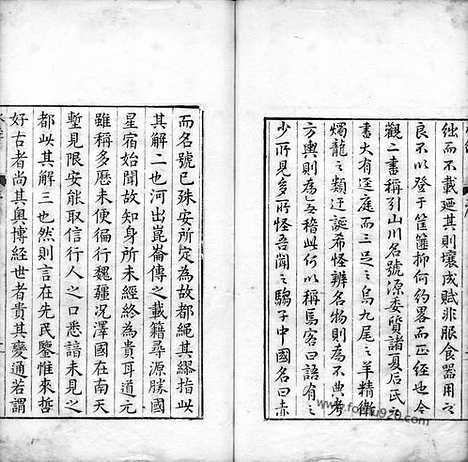 絀而不載厥其則壤成賦非服食器用之
良不以登于筐篚抑何約畧而正經也今
觀二書稱引山川名號源委質諸夏后氏之
書大有逕庭而三足之烏九尾之羊精衛
燭龍之類迂誕希怪辨名物則為不典考
方輿則為乏稽此何以稱焉客曰語有之
少所見多所怪吾聞之騶子中國名曰赤
而名號已殊安所定為故都繩其繆指此
其解二也河出崑崙傳之載籍尋源勝國
星宿始聞故知身所未經終為貴耳道元
雖稱多歷未便徧行魏疆况澤國在南天
塹見限安能取信行人之口悉諳未見之
都此其解三也然則言在先民鑒惟來哲
好古者尚其奧博經世者貴其變通若謂